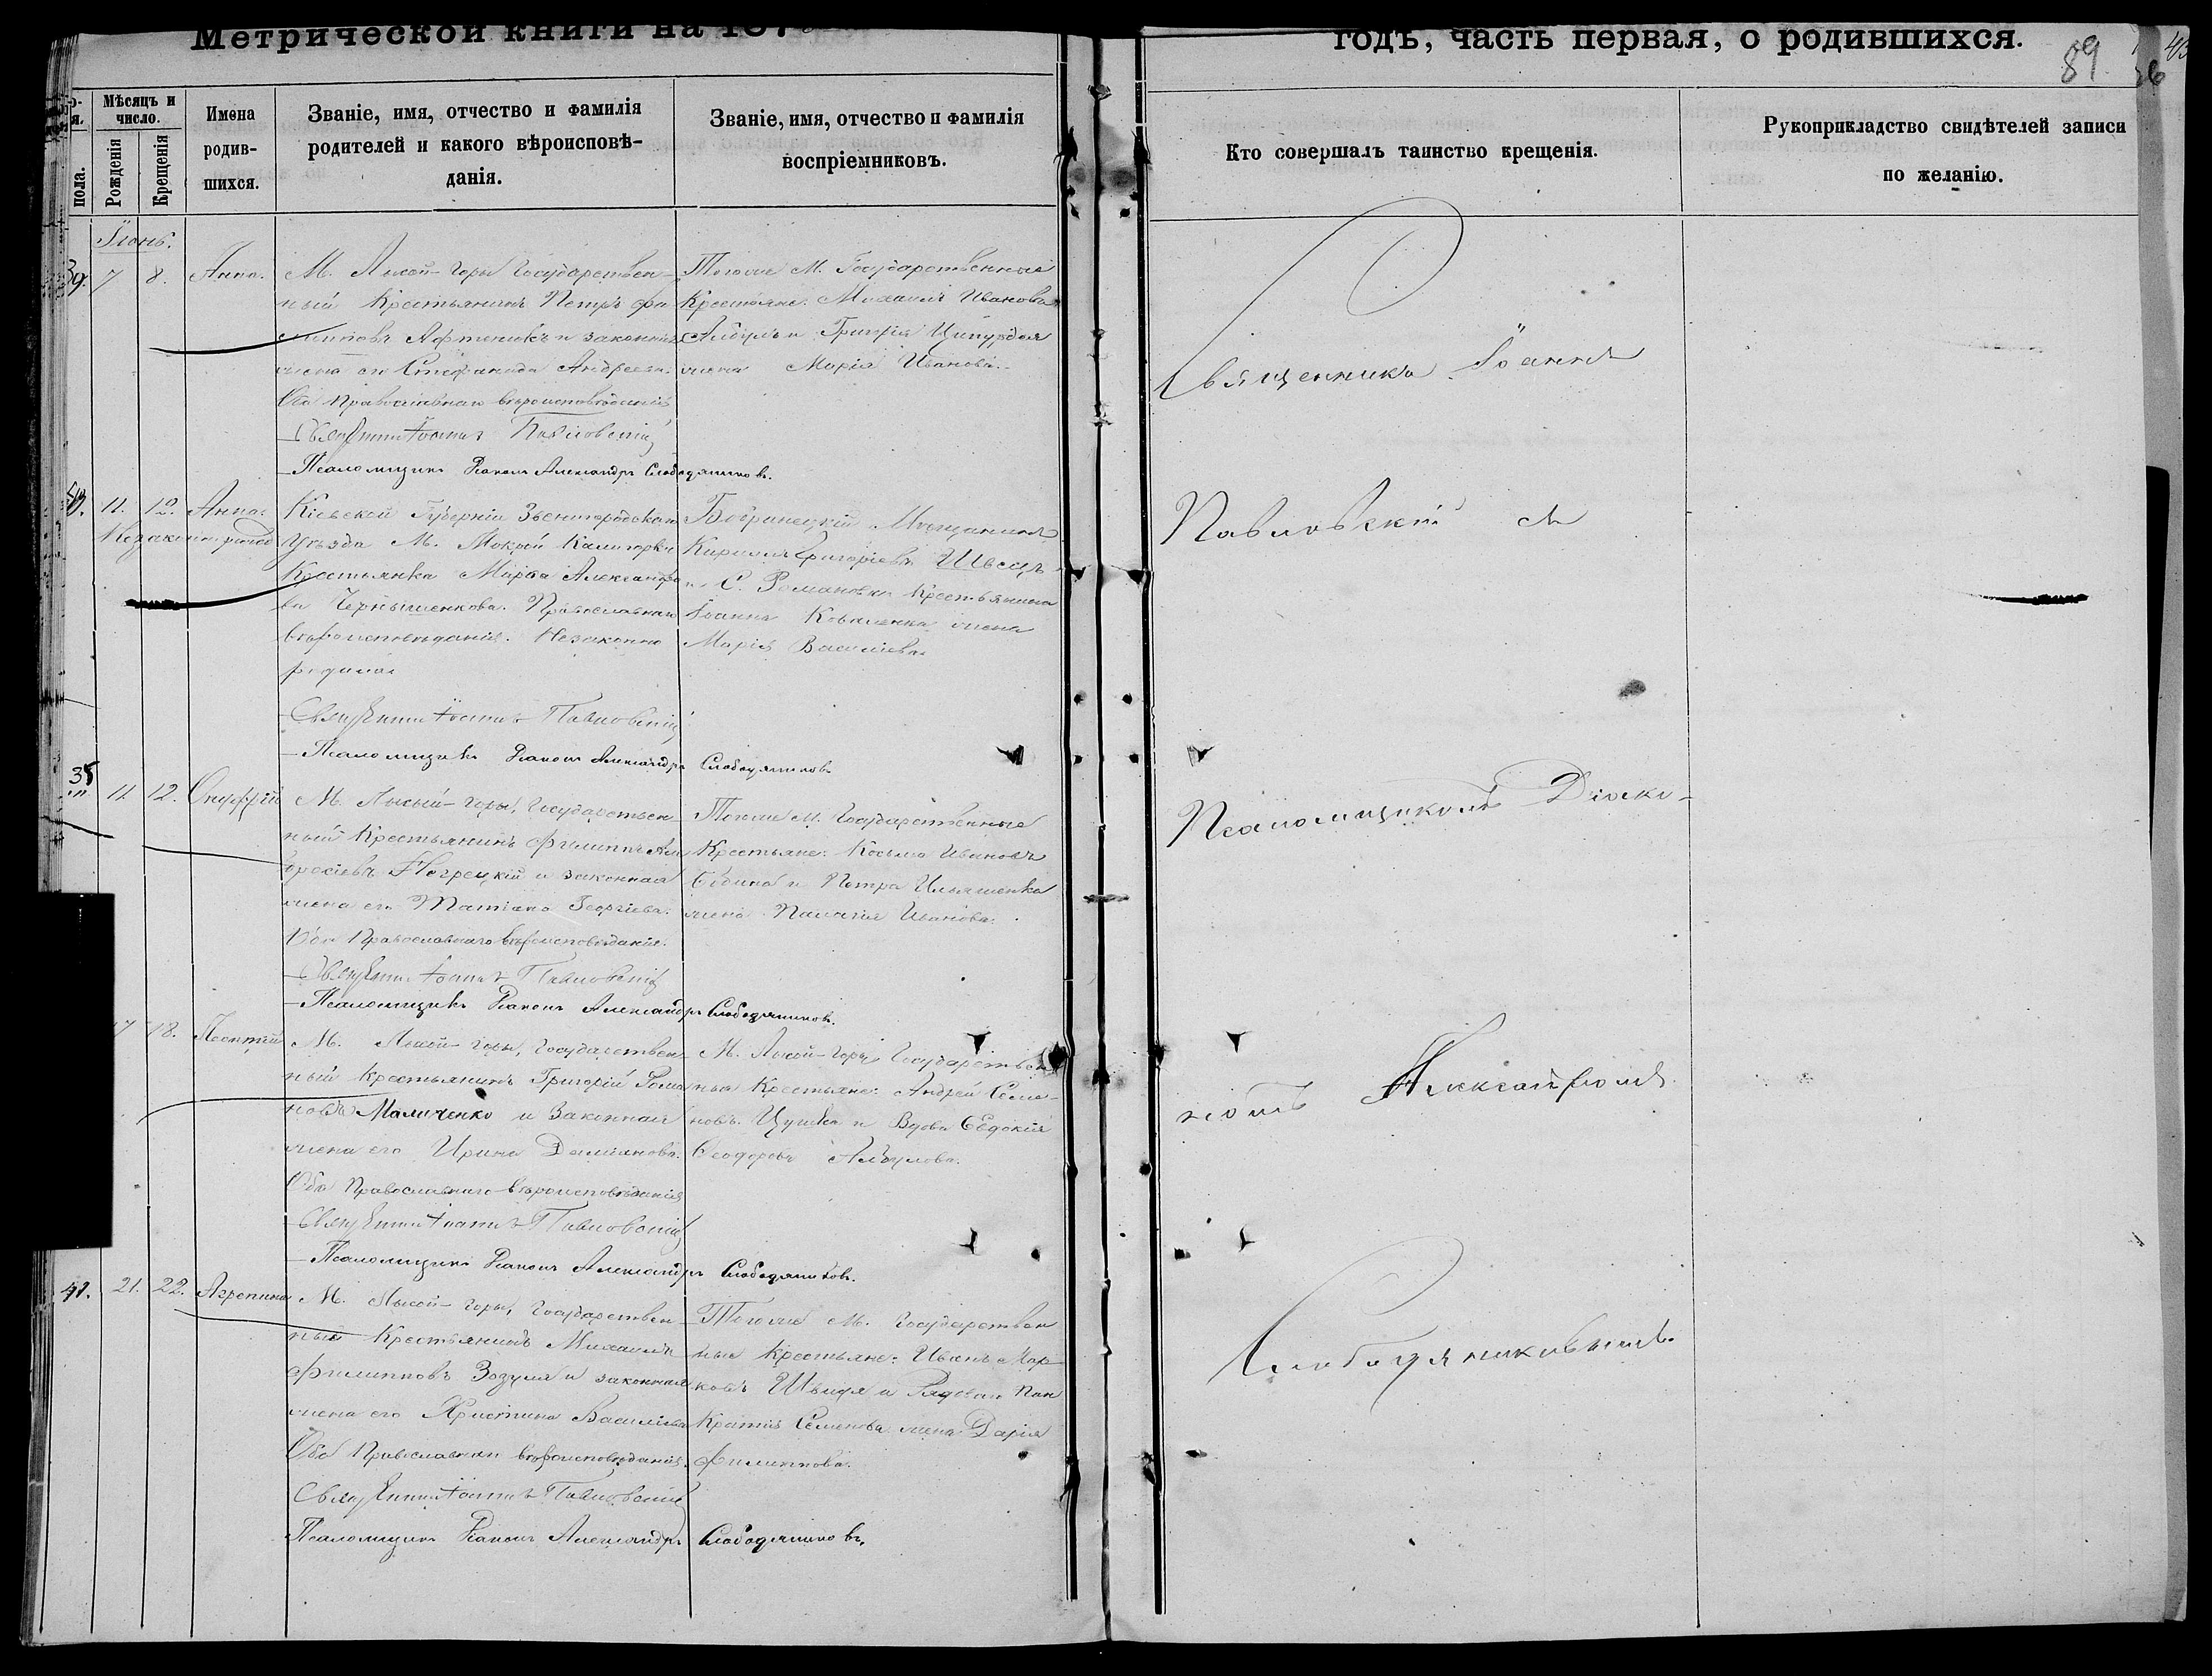 Метрической книги на 187
годъ, часть первая, о родившихся.
89
Мѣсяцъ и число.
Рожденія
Крещенія
пола.
Имена родив-шихся.
Званіе, имя, отчество и фамилія
родителей и какого вѣроисповѣ-
данія.
Званіе, имя, отчество и фамилія
воспріемниковъ.
Кто совершалъ таинство крещенія.
Рукоприкладство свидѣтелей записи
по желанію.
Іюнь.
39. 7 8. Анна.
М. Лысой-Горы Государствен-
ный Крестьянинъ Петръ Фи
липповъ и законная
жена его Стефанида Андреева.
Оба Православнаго вѣроисповѣданія
Священникъ Іоаннъ Павловскій
Псаломщикъ Діаконъ Александръ Слободяниковъ.
Тогоже М. Государственные
Крестьяне: Михаилъ Ивановъ
Албулъ и Григорія
жена Марія Иванова.
40. 11. 12. Анна.
Незаконнорожд
Кіевской Губерніи Звенигородскаго
Уѣзда М. Мокрой Калигорки
Крестьянка Марѳа Александро
ва Чернышенкова. Православнаго
вѣроисповѣданія. Незаконно
родила
Священникъ Іоаннъ Павловскій
Псаломщикъ Діаконъ Александръ Слободяниковъ
Бобринецкій Мѣщанинъ
Кириллъ Григоріевъ Швецъ
и С. Романовки Крестьянина
Іоанна Коваленка жена
Марія Василіева
35 11 12. Онуфрій
М. Лысой-Горы, Государствен
ный Крестьянинъ Филиппъ Ан
дреевъ Погрецкій и законная
жена его Татіана Георгіева.
Оба Православнаго вѣроисповѣданія.
Священникъ Іоаннъ Павловскій
Псаломщикъ Діаконъ Александръ Слободяниковъ.
Тогоже М. Государственные
Крестьяне: Косьма Ивановъ
и Петра Ильяшенка
жена Пелагія Иванова.
17 18. Леонтій
М. Лысой-Горы, Государствен
ный Крестьянинъ Григорій Рома
новъ Маличенко и Законная
жена его Ирина Даміанова.
Оба Православнаго вѣроисповѣданія
Священникъ Іоаннъ Павловскій
Псаломщикъ Діаконъ Александръ Слободяниковъ.
М. Лысой-Горы Государствен
ные Крестьяне: Андрей Семе-
новъ Цушка и Вдова Евдокія
Ѳеодорова Албулова.
41. 21. 22. Агрепина
М. Лысой-Горы, Государствен
ный Крестьянинъ Михаилъ
Филипповъ Зозуля и законная
жена его Христина Василіева
Оба Православнаго вѣроисповѣданія.
Священникъ Іоаннъ Павловскій
Псаломщикъ Діаконъ Александръ Слободяниковъ.
Тогоже М. Государствен
ные Крестьяне: Иванъ Мар-
ковъ Швидя и Рядоваго Пан
кратія Семенова жена Дарія
Филиппова.
Священникъ Іоаннъ
Павловскій съ
Псаломщикомъ Діако-
номъ Александромъ
Слободяниковымъ.